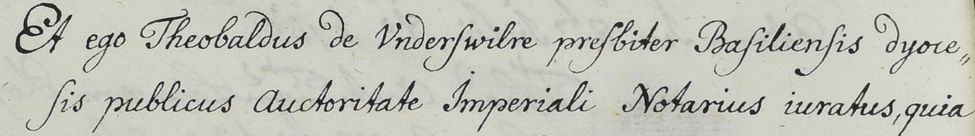 Et ego Theobaldus de Vnderswilre presbiter Basiliensis dyoce„
sis publicus Auctoritate Imperiali Notarius iuratus, quia